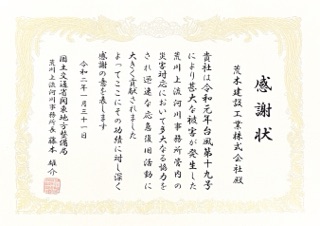 感謝状
荒木建設工業株式会社殿
貴社は令和元年台風第十九号
により甚大な被害が発生した
荒川上流河川事務所管内の
災害対応において多大なる協力を
され迅速な応急復旧活動に
大きく貢献されました
よってここにその功績に対し深く
感謝の意を表します
令和二年一月三十一日
国土交通省関東地方整備局
荒川上流河川事務所長 藤本雄介